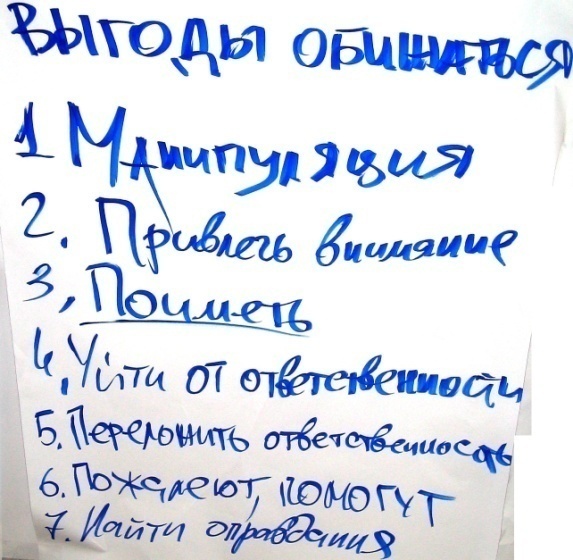 ВЫГОДЫ ОБИЖАТЬСЯ
1 Манипуляция
2. Привлечь внимание
3, Поиметь
4, Уйти от ответственности
5. Переложить ответственность
6. Пожалеют, помогут
7. Найти оправдания